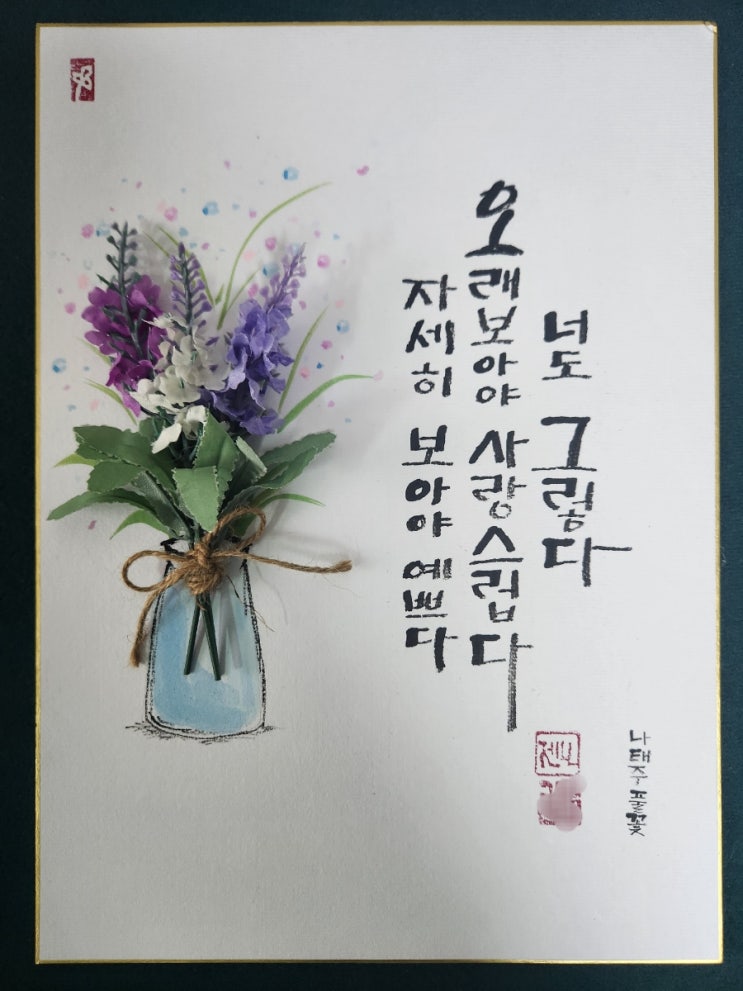 자세히 보아야 예쁘다
오래보아야 사랑스럽다
너도 그렇다
나태주 풀꽃